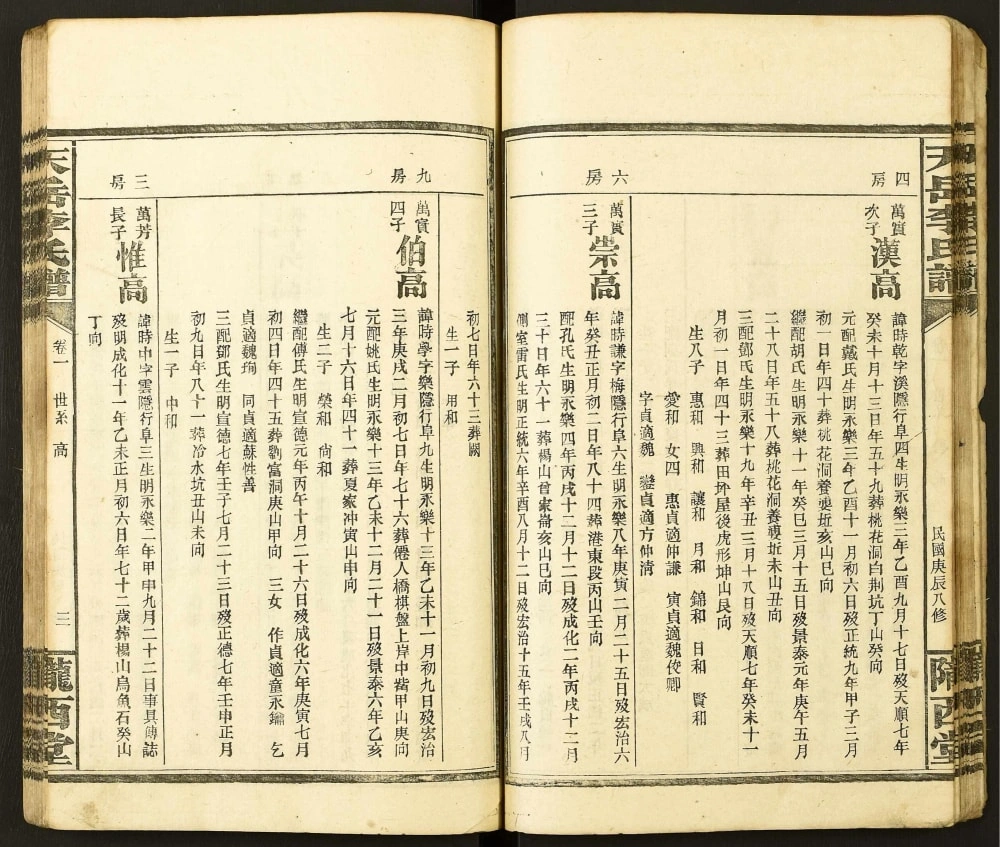 天岳李氏譜
民國庚辰八修
隴西堂
四房
萬寅次子
漢高
諱時乾字溪隱行阜四生明永樂三年乙酉九月十七日歿天順七年
癸未十月十三日年五十九葬桃花洞白荆坑丁山癸向
元配戴氏生明永樂三年乙酉十一月初六日歿正統九年甲子三月
初一日年四十葬桃花洞養䙡坵亥山巳向
繼配胡氏生明永樂十一年癸巳三月十五日歿景泰元年庚午五月
二十八日年五十八葬桃花洞養䙡坵未山丑向
三配鄧氏生明永樂十九年辛丑三月十八日歿天順七年癸未十一
月初一日年四十三葬田坤屋後虎形坤山艮向
生八子 惠和 興和 讓和 月和 錦和 日和 賢和
愛和 女四 惠貞適仲謙 寅貞適魏俊卿
字貞適魏 鑾貞適方仲清
六房
萬寅三子
崇高
諱時謙字梅隱行阜六生明永樂八年庚寅二月二十五日歿宏治六
年癸丑正月初二日年八十四葬港東段丙山壬向
配孔氏生明永樂四年丙戌十二月十二日歿成化二年丙戌十二月
三十日年六十一葬楊山曾家崙亥山巳向
側室雷氏生明正統六年辛酉八月十二日歿宏治十五年壬戌八月
初七日年六十三葬闕
生一子 用和
九房
萬寅四子
伯高
諱時學字樂隱行阜九生明永樂十三年乙未十一月初九日歿宏治
三年庚戌二月初七日年七十六葬僊人橋棋盤上岸中嘴甲山庚向
元配姚氏生明永樂十三年乙未十二月二十一日歿景泰六年乙亥
七月十六日年四十一葬夏家冲寅山申向
生二子 榮和 尙和
繼配傅氏生明宣德元年丙午十月二十六日歿成化六年庚寅七月
初四日年四十五葬劉富洞庚山甲向 三女 作貞適童永鏞 乞
貞適魏珣 同貞適蘇性善
三配鄧氏生明宣德七年壬子七月二十三日歿正德七年壬申正月
初九日年八十一葬冷水坑丑山未向
生一子 中和
三房
萬芳長子
惟高
諱時中字雲隱行阜三生明永樂二年甲申九月二十二日事具傳誌
歿明成化十一年乙未正月初六日年七十二歲葬楊山烏魚石癸山
丁向
天岳李氏譜
卷一 世系 高
三
隴西堂